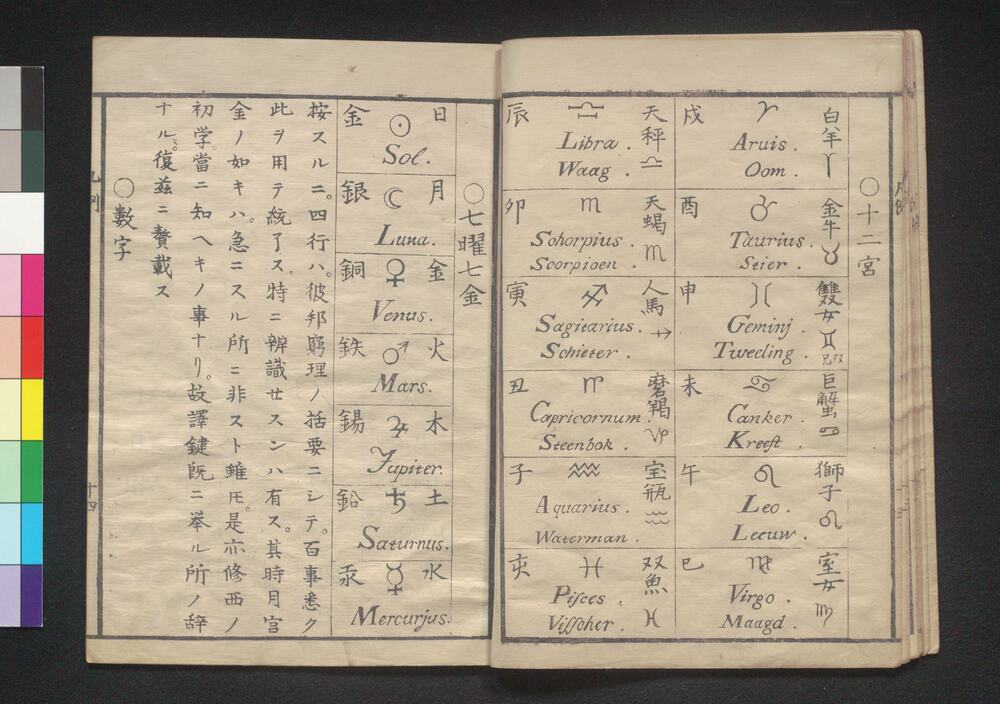 ○十二宮
白羊 ♈
戌 ♈
Aruis.
Oom.
金牛 ♉
酉 ♉
Taurius.
Stier.
雙女 ♊
申 ♊
Geminj
Tweeling.
巨蟹 ♋
未 ♋
Canker.
Kreeft.
獅子 ♌
午 ♌
Leo.
Leeuw.
室女 ♍
巳 ♍
Virgo.
Maagd.
天秤 ♎
辰 ♎
Libra.
Waag.
天蝎 ♏
卯 ♏
Sohorpius.
Scorpioen.
人馬 ♐
寅 ♐
Sagitarius.
Schieter.
磨羯 ♑
丑 ♑
Capricornum.
Steenbok.
宝瓶 ♒
子 ♒
Aquarius.
Waterman.
双魚 ♓
亥 ♓
Piſces.
Viſſcher.
○七曜七金
日 ☉ 金
Sol.
月 ☾ 銀
Luna.
金 ♀ 銅
Venus.
火 ♂ 鉄
Mars.
木 ♃ 錫
Jupiter.
土 ♄ 鉛
Saturnus.
水 ☿ 汞
Mercurjus.
按スルニ。四行ハ。彼邦窮理ノ括要ニシテ。百事悉ク
此ヲ用テ統了ス。特ニ辨識セスンハ有ス。其時月宮
金ノ如キハ。急ニスル所ニ非スト雖𪜈。是亦修西ノ
初学。當ニ知ヘキノ事ナリ。故譯鍵既ニ挙ル所ノ辞
ナル。復茲ニ贅載ス
○數字
十四